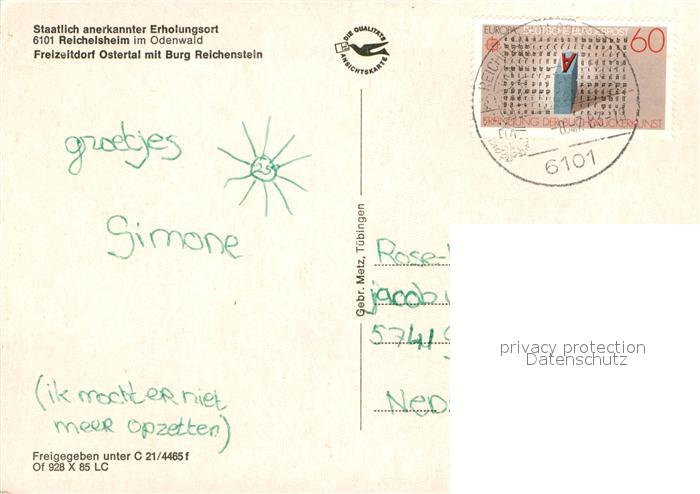 Staatlich anerkannter Erholungsort
6101 Reichelsheim im Odenwald
Freizeitdorf Ostertal mit Burg Reichenstein
DIE QUALITÄTS
ANSICHTSKARTE
EUROPA DEUTSCHE BUNDESPOST 60
A
ERFINDUNG DER BUCHDRUCKERKUNST
6101
groetjes
25°
Simone
Gebr. Metz, Tübingen
Rose-
jacob
5741
Ned
privacy protection
Datenschutz
(ik mocht er niet
meer opzetten)
Freigegeben unter C 21/4465 f
Of 928 X 85 LC